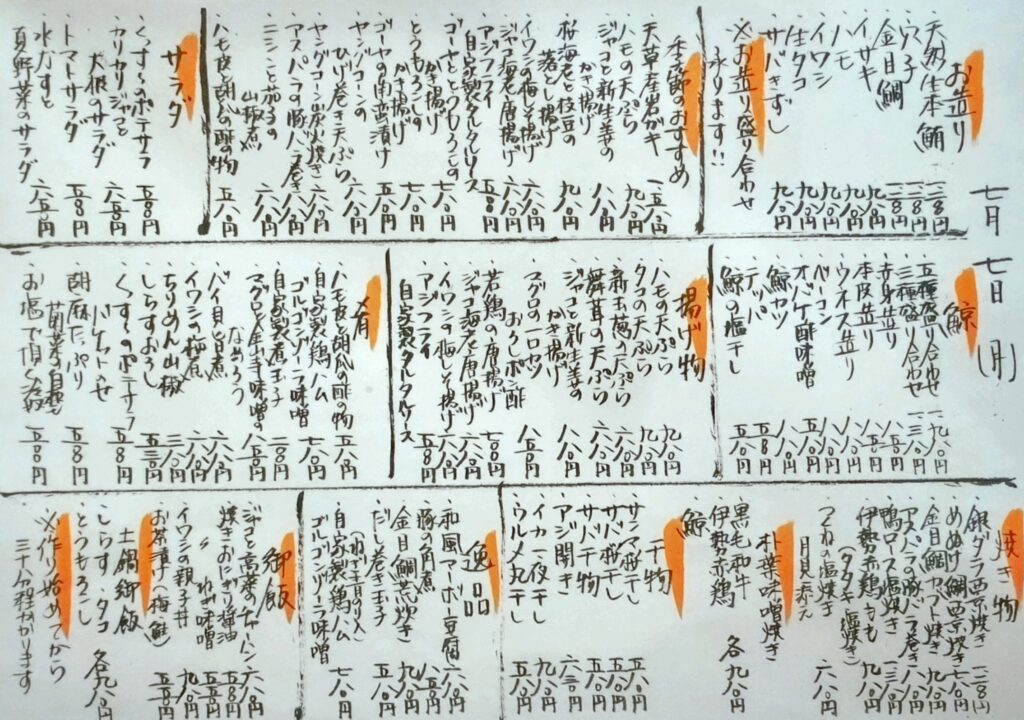 七月七日(月)
お造り
天然生本鮪 一三八〇円
穴子 一三八〇円
金目鯛 一三八〇円
イサキ 九八〇円
ハモ 九八〇円
イワシ 九八〇円
生タコ 九八〇円
サバきずし 九八〇円
※お造り盛り合わせ
承ります!!
季節のおすすめ
天草産岩ガキ
ハモの天ぷら 九八〇円
ジャコと新生姜の
かき揚げ 八八〇円
桜海老と枝豆の
落とし揚げ 九八〇円
イワシの梅しそ揚げ
ジャコ海老唐揚げ
アジフライ
自家製タルタルソース 五八〇円
ゴーヤととうもろこしの
かき揚げ 七八〇円
とうもろこしの
かき揚げ 七八〇円
ゴーヤの南蛮漬け 五八〇円
ヤングコーンの
ひげ巻き天ぷら 六八〇円
ヤングコーン炭火焼き 六八〇円
アスパラの豚バラ巻き 六八〇円
ニシンと茄子の
山椒煮 六八〇円
ハモ皮と胡瓜の酢の物 五八〇円
サラダ
くすくすのポテサラ 五八〇円
カリカリジャコと
大根のサラダ 六五〇円
トマトサラダ 五八〇円
水なすと
夏野菜のサラダ 六五〇円
鯨
五種盛り合わせ 一九八〇円
三種盛り合わせ 一三八〇円
赤身造り
本皮造り
ウネス造り
ベーコン
オバケ酢味噌
鯨カツ
テッパ 五八〇円
鯨の塩干し 五八〇円
揚げ物
ハモの天ぷら 九八〇円
タコの天ぷら 九八〇円
新玉葱の天ぷら 六八〇円
舞茸の天ぷら 六八〇円
ジャコと新生姜の
かき揚げ 八八〇円
マグロの一口カツ
おろしポン酢 八五〇円
若鶏の唐揚げ 七八〇円
ジャコ海老唐揚げ 六八〇円
イワシの梅しそ揚げ 六八〇円
アジフライ
自家製タルタルソース 五八〇円
肴
ハモ皮と胡瓜の酢の物 五八〇円
自家製鶏ハム
ゴルゴンゾーラ味噌 七八〇円
自家製煮玉子 二八〇円
マグロと生姜味噌の
なめろう 八五〇円
バイ貝旨煮 六八〇円
イワシの梅煮 六八〇円
ちりめん山椒 三八〇円
しらすおろし 五三〇円
くすくすのポテサラ
バケット添え 五八〇円
胡麻だっぷり
お塩で頂く冷奴 五八〇円
焼き物
銀ダラ西京焼き 一二八〇円
めぬけ鯛西京焼き
金目鯛カブト焼き 九八〇円
アスパラの豚バラ巻き 六八〇円
鴨ロース塩焼き 一三八〇円
伊勢赤鶏もも
(タタキ・塩焼き) 九八〇円
つくねの塩焼き
月見添え 六八〇円
朴葉味噌焼き
黒毛和牛
伊勢赤鶏
鯨 各九八〇円
干物
サンマ桜干し 五八〇円
サバ桜干し 五八〇円
サバ干物 五八〇円
アジ開き 六三〇円
イカ一夜干し 九八〇円
ウルメ丸干し 五八〇円
逸品
和風マーボー豆腐 六八〇円
豚の角煮
金目鯛荒炊き 九八〇円
だし巻き玉子 五八〇円
自家製鶏ハム
ゴルゴンゾーラ味噌 七八〇円
御飯
ジャコと高菜のチャーハン 六八〇円
焼きおにぎり醤油 五八〇円
〃 ねぎ味噌 五五〇円
イワシの親子丼 九八〇円
お茶漬け(梅・鮭) 五五〇円
土鍋御飯
しらす・タコ
とうもろこし 各九八〇円
※作り始めてから
三十分程かかります